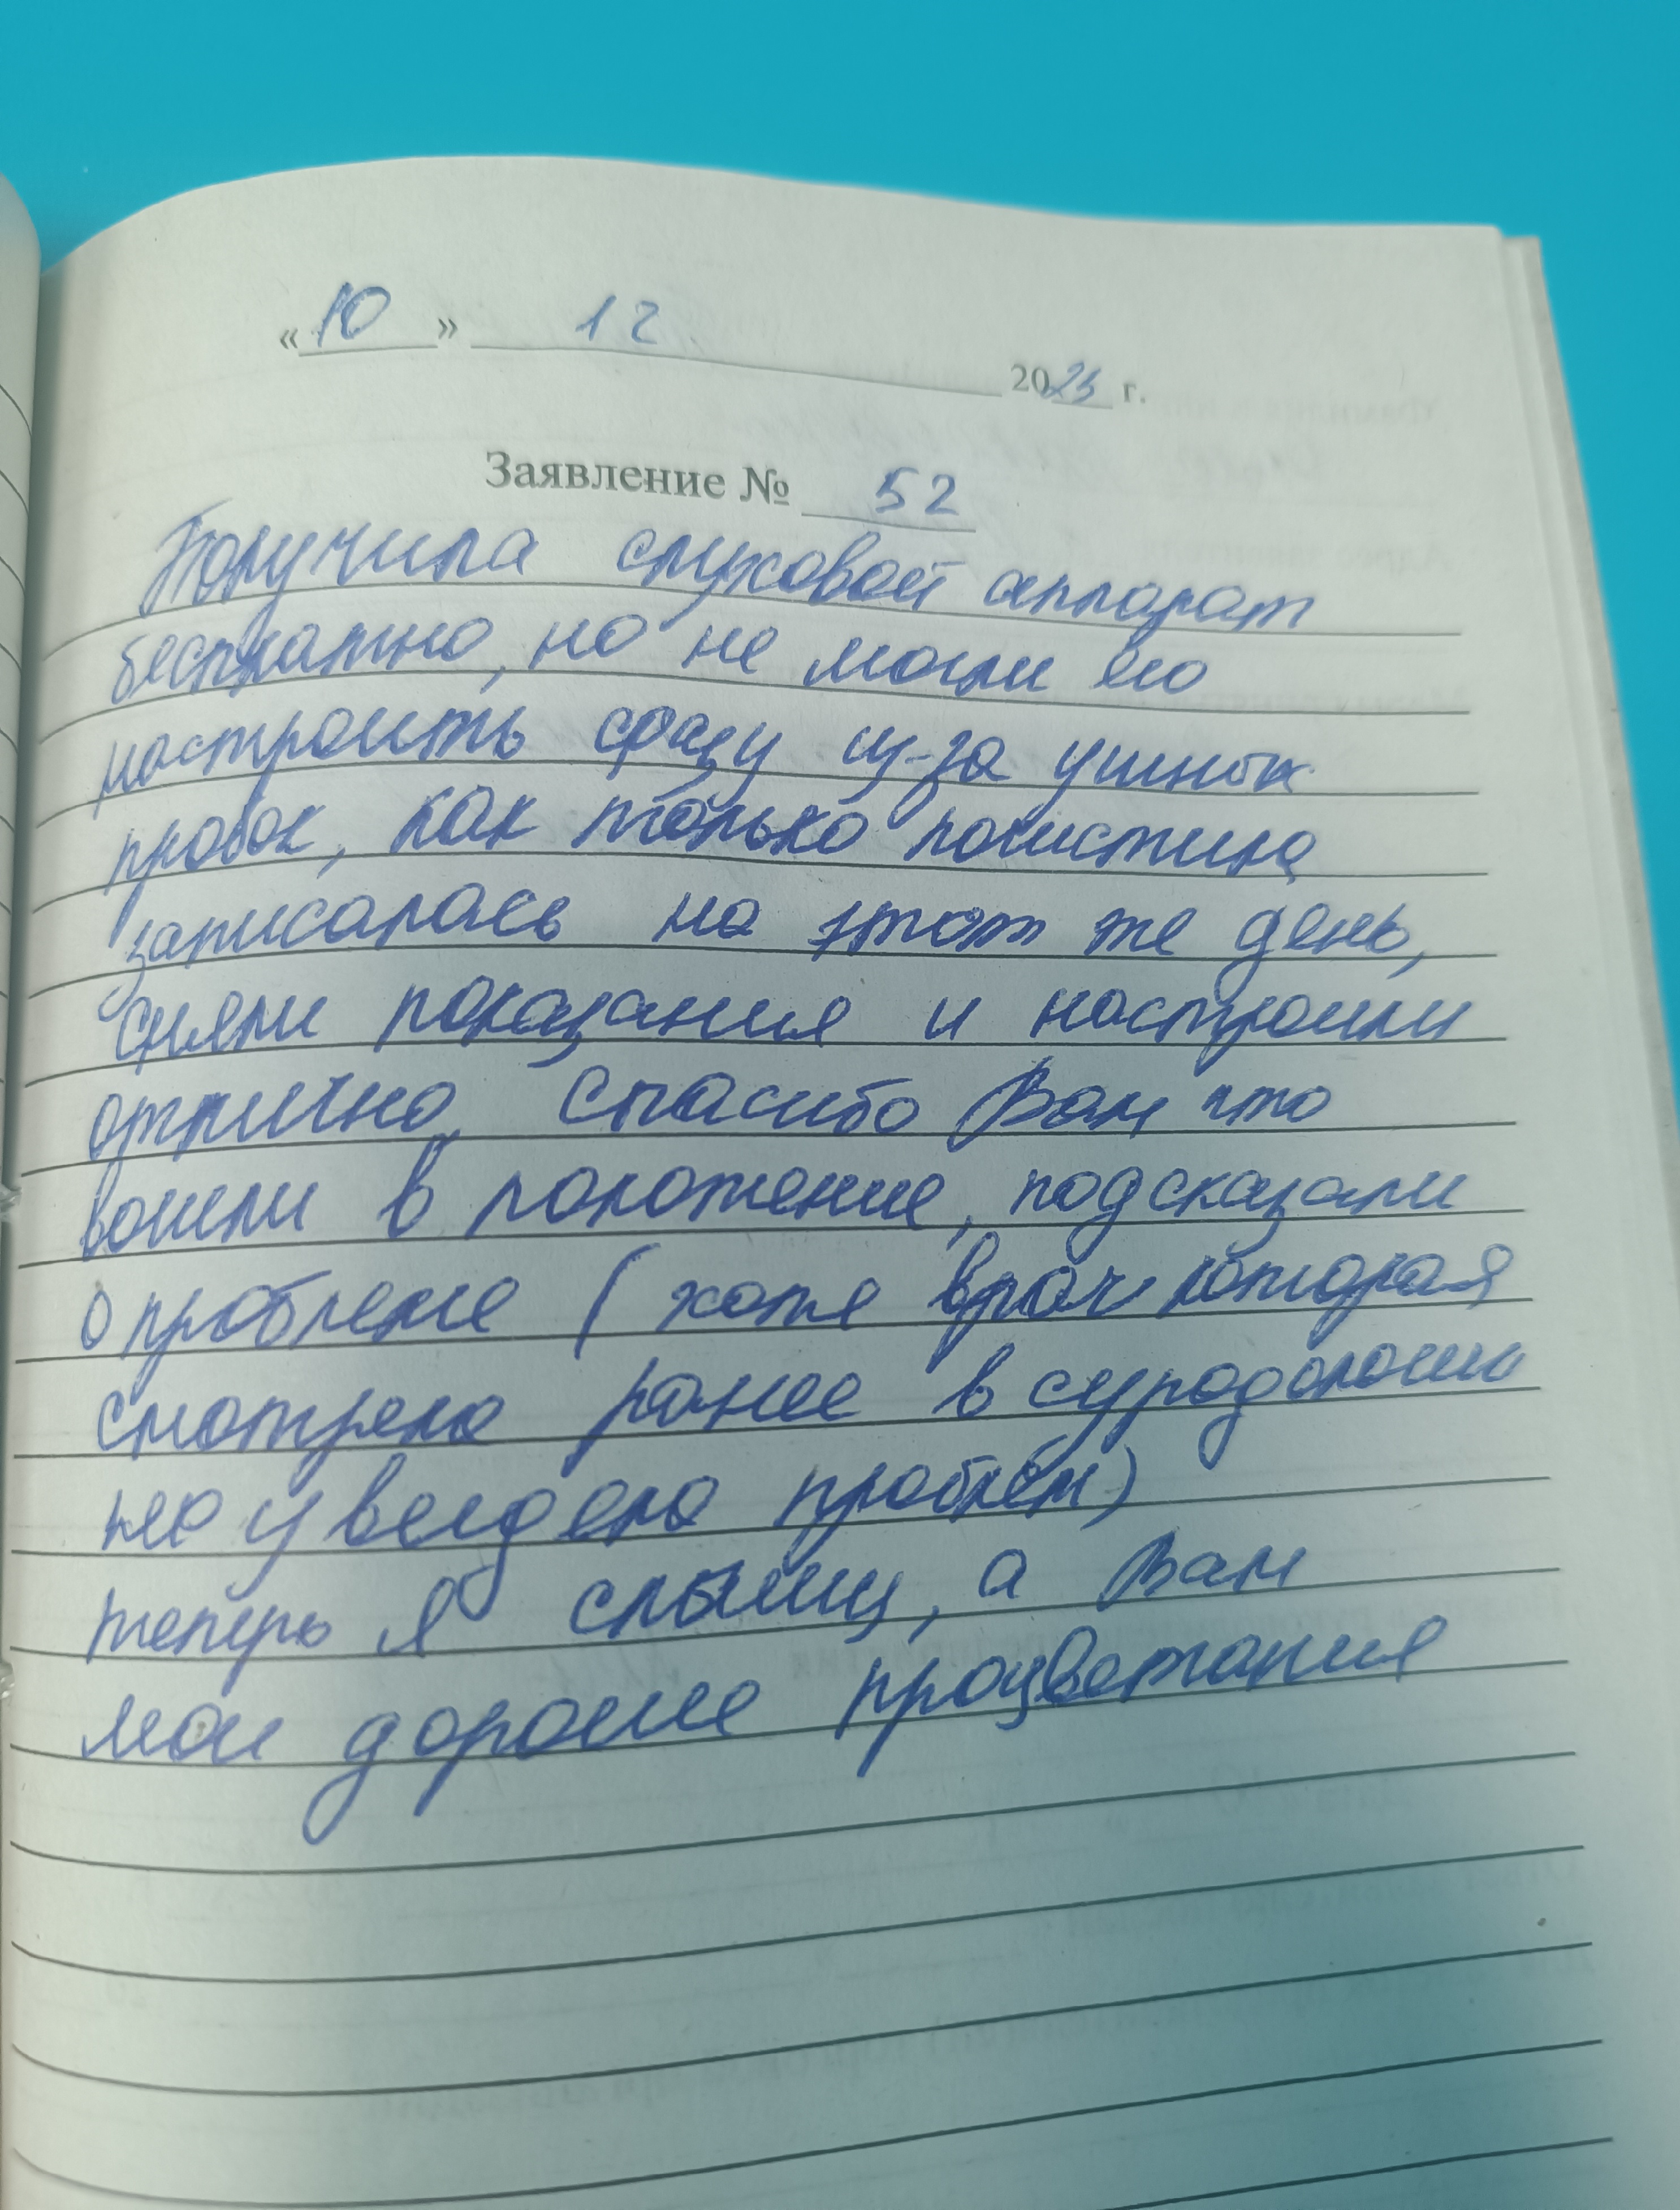 «10» 12 2025 г.
Заявление № 52
Получила слуховой аппарат
бесплатно, но не могли его
настроить сразу из-за ушных
пробок, как только почистила
записалась на этот же день,
сняли показания и настроили
отлично, спасибо Вам что
вошли в положение, подсказали
о проблеме (хотя врач которая
смотрела ранее в сурдологии
не увидела проблем)
теперь я слышу, а Вам
мои дорогие процветания